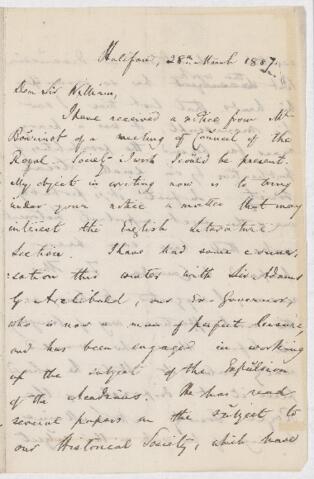 Halifax, 28th March 1887.
Dear Sir William,
I have received a notice from Mr
Bourinot of a meeting of Council of the
Royal Society. I wish I could be present.
My object in writing now is to bring
under your notice a matter that may
interest the English Literature
Section. I have had some conver-
sation this winter with Sir Adams
G. Archibald, our Ex-Governor,
who is now a man of perfect leisure,
and has been engaged in working
up the subject of the Expulsion
of the Acadians. He has read
several papers on the subject to
our Historical Society, which have